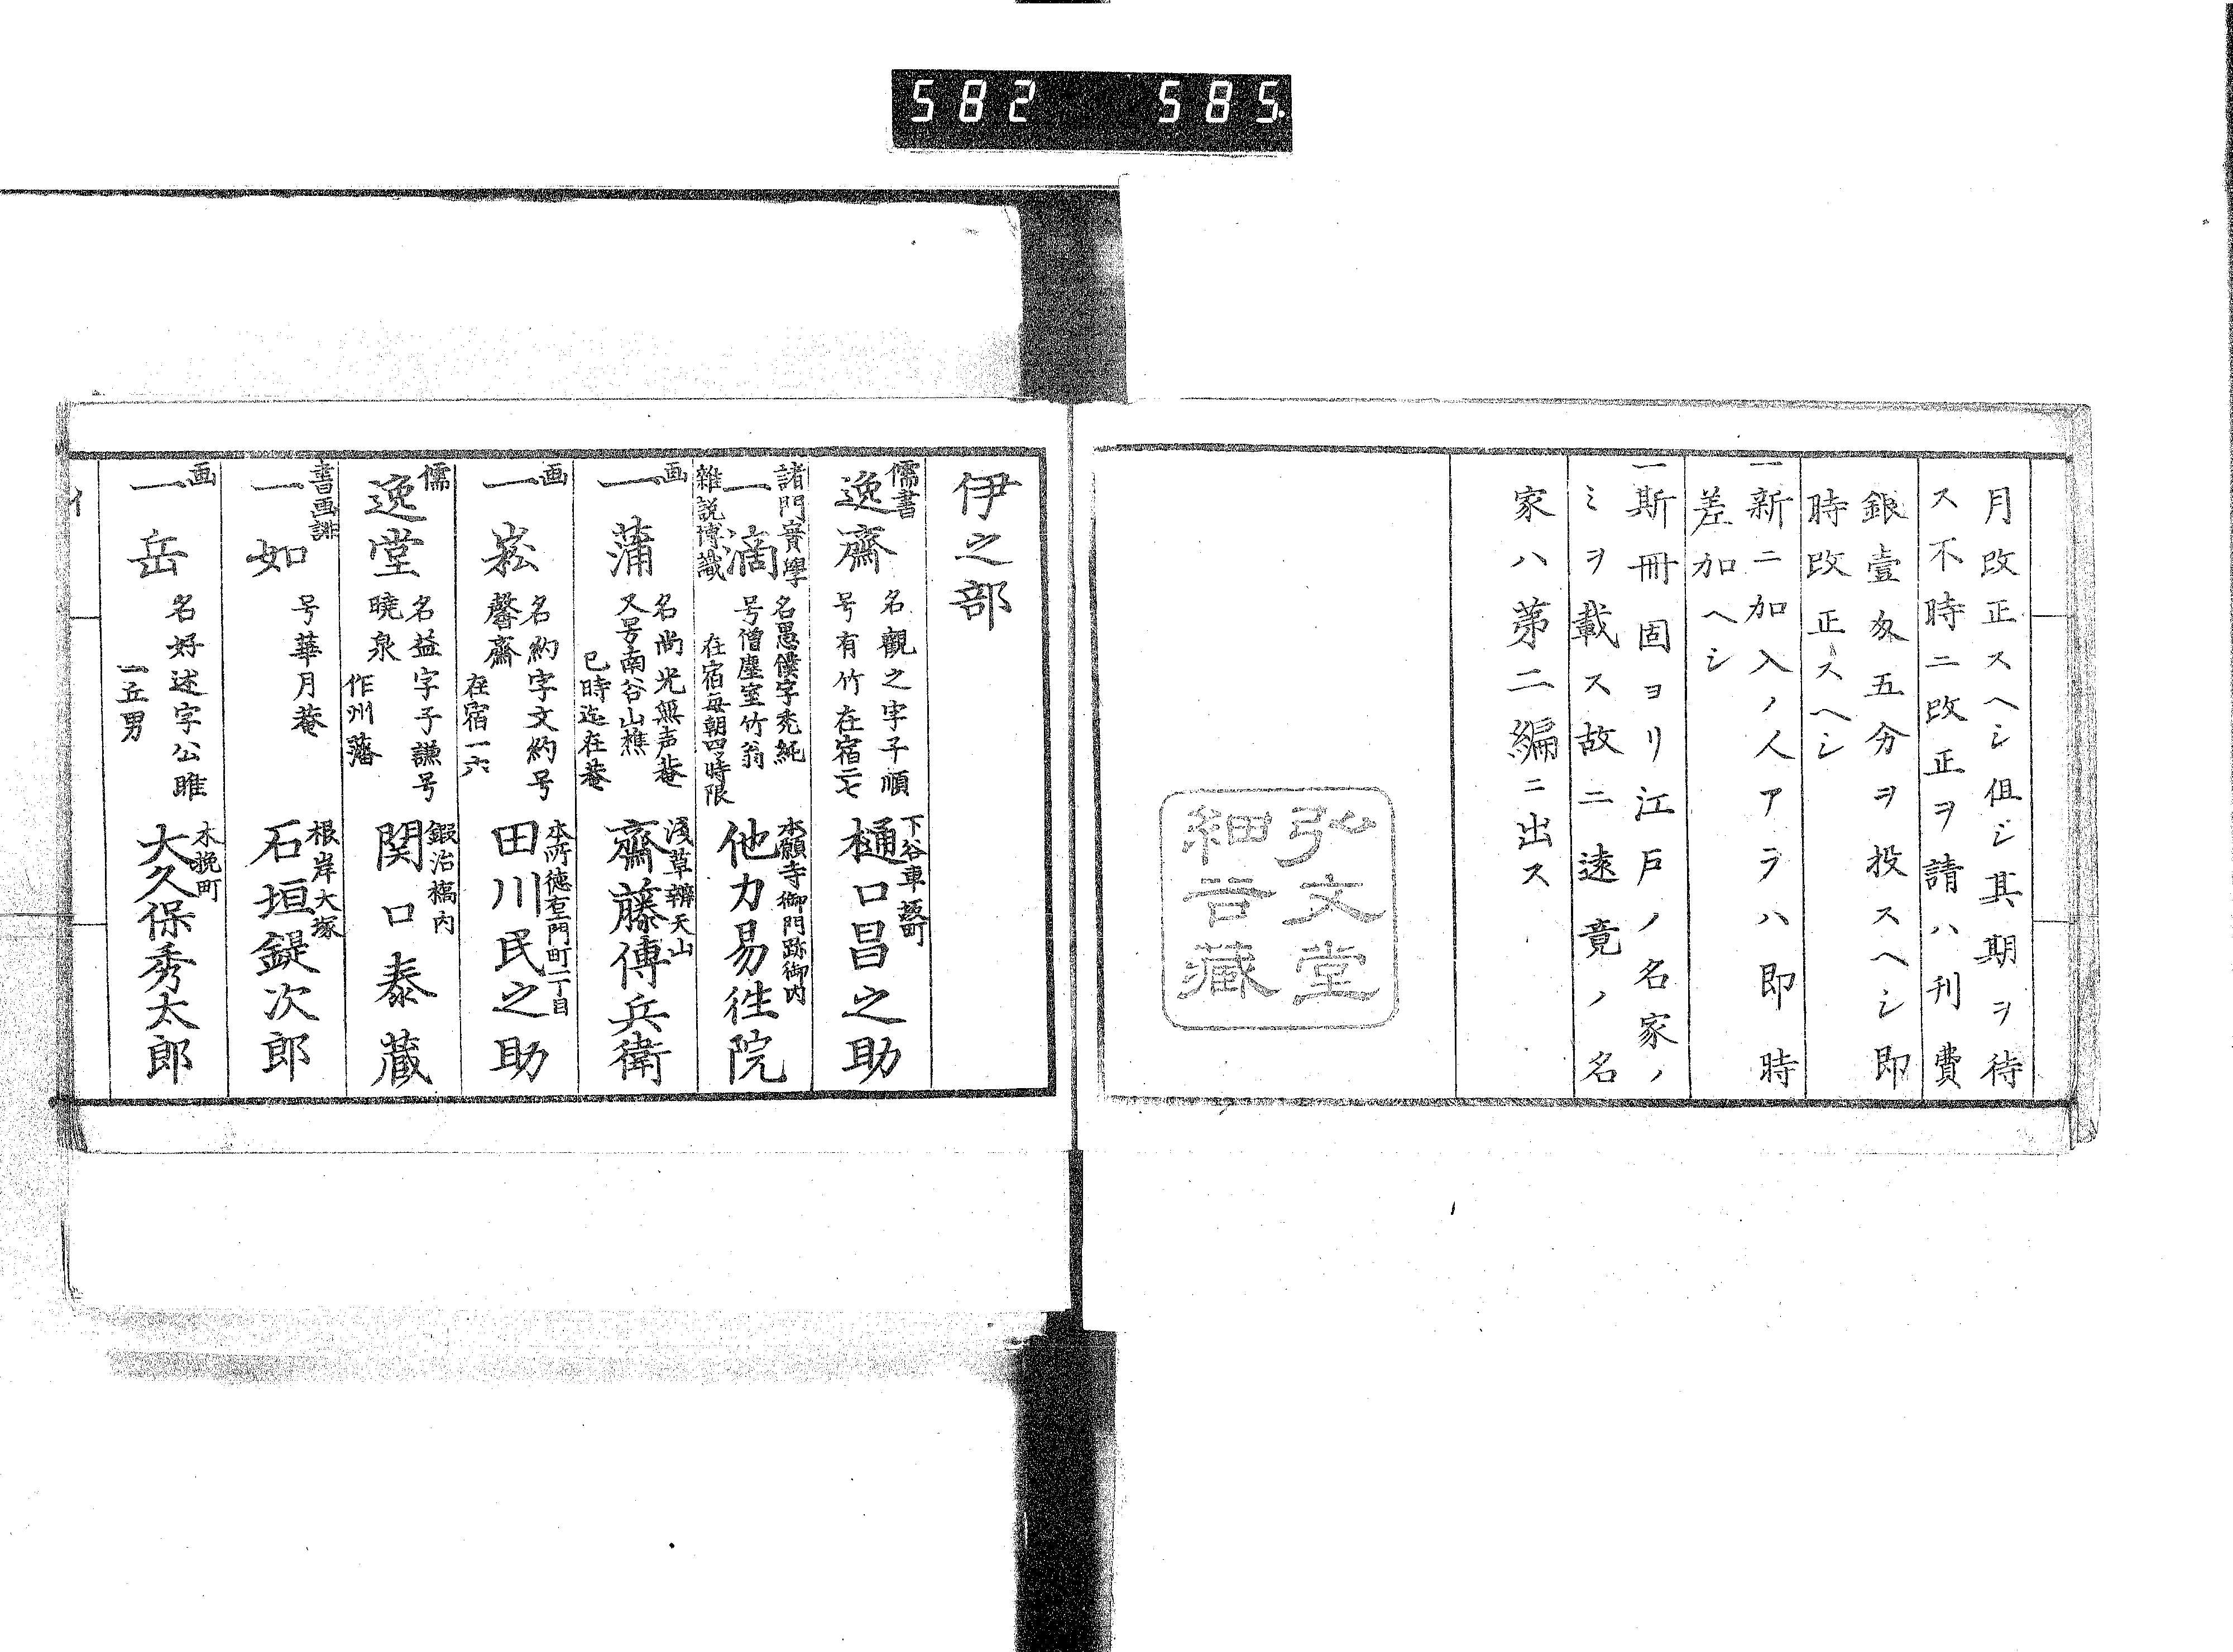 582 585
月改正スヘシ但シ其期ヲ待
ス不時ニ改正ヲ請ハ刊費
銀壹匁五分ヲ投スヘシ即
時改正スヘシ
一新ニ加入ノ人アラハ即時
差加ヘシ
一斯冊固ヨリ江戸ノ名家ノ
ミヲ載ス故ニ遠竟ノ名
家ハ第二編ニ出ス
弘文堂
細吉藏
伊之部
儒書
逸齋
名觀之字子順
号有竹在宿二七
下谷車坂町
樋口昌之助
諸門賓學
雜説博識
一滴
名愚僕字禿純
号僧塵室竹翁
在宿毎朝四時限
本願寺御門跡御内
他力易徃院
画
一蒲
名尚光無声菴
又号南谷山樵
巳時迄在菴
浅草辨天山
齋藤傳兵衛
画
一崧
名約字文約号
馨齋
在宿一六
本所徳右門町一丁目
田川民之助
儒
逸堂
名益字子謙号
曉泉
作州藩
鍛冶橋内
関口泰藏
書画誹
一如
号華月菴
根岸大塚
石垣鍉次郎
画
一岳
名好述字公雎
一五男
木挽町
大久保秀太郎
イ